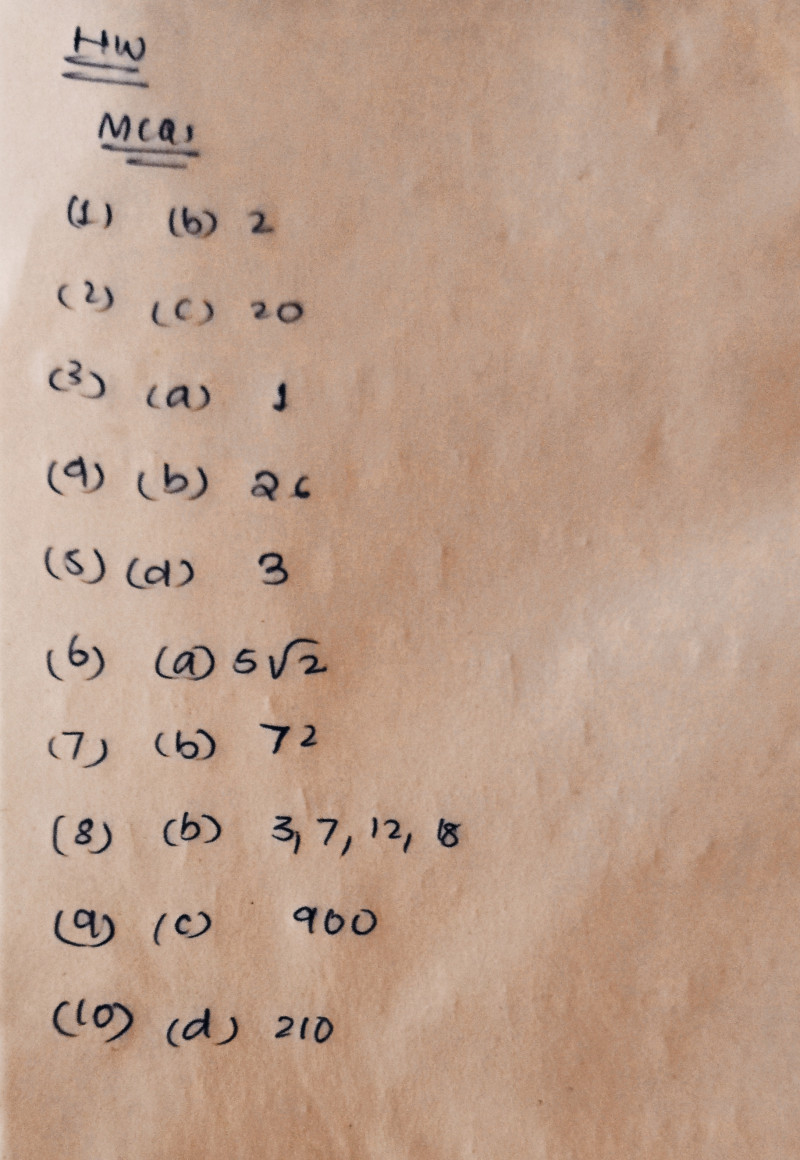 HW
MCQs
(1) (b) 2
(2) (c) 20
(3) (a) 1
(4) (b) 26
(5) (d) 3
(6) (a) 5√2
(7) (b) 72
(8) (b) 3, 7, 12, 18
(9) (c) 900
(10) (d) 210